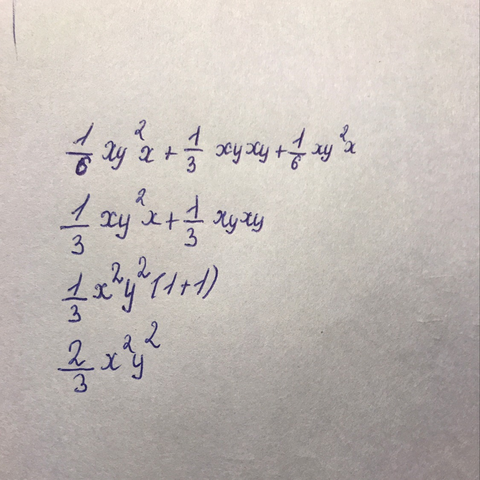 1/6 xy²x + 1/3 xyxy + 1/6 xy²x
1/3 xy²x + 1/3 xyxy
1/3 x²y² (1+1)
2/3 x²y²